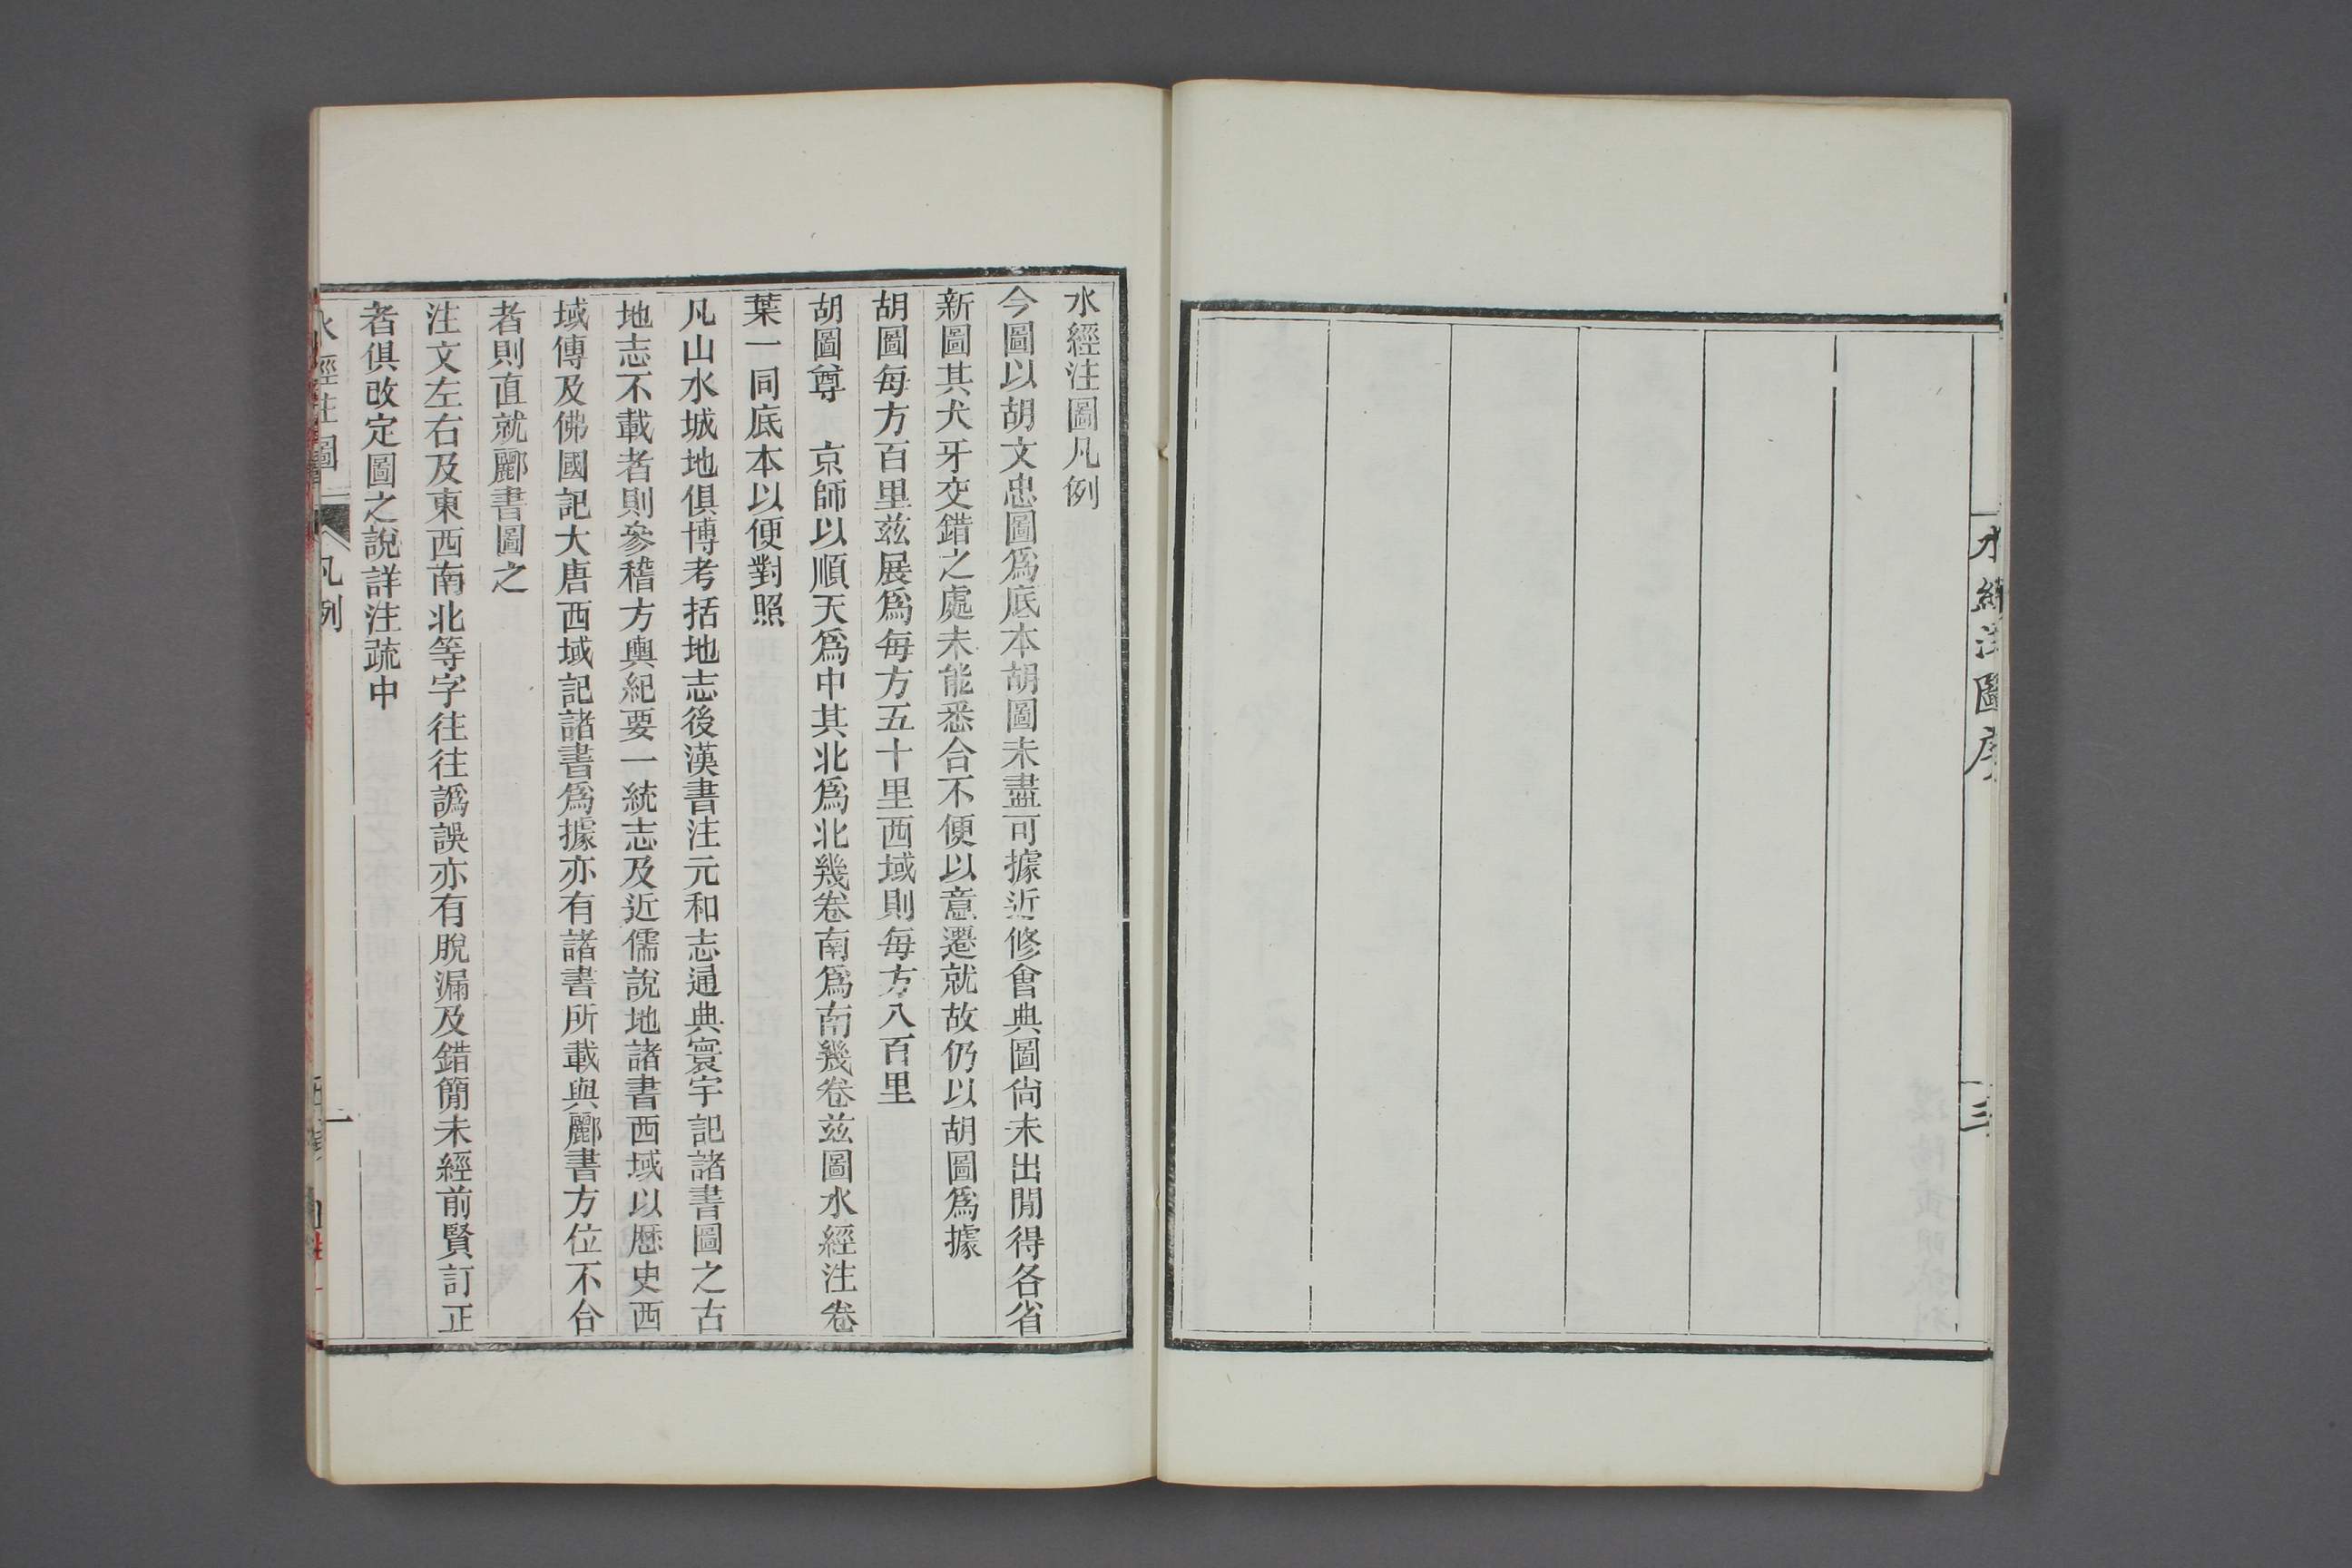 水經注圖序
三
水經注圖凡例
今圖以胡文忠圖爲底本胡圖未盡可據近修會典圖尙未出閒得各省
新圖其犬牙交錯之處未能悉合不便以意遷就故仍以胡圖爲據
胡圖每方百里茲展爲每方五十里西域則每方八百里
胡圖尊　京師以順天爲中其北爲北幾卷南爲南幾卷茲圖水經注卷
葉一同底本以便對照
凡山水城地俱博考括地志後漢書注元和志通典寰宇記諸書圖之古
地志不載者則參稽方輿紀要一統志及近儒說地諸書西域以歷史西
域傳及佛國記大唐西域記諸書爲據亦有諸書所載與酈書方位不合
者則直就酈書圖之
注文左右及東西南北等字往往譌誤亦有脫漏及錯簡未經前賢訂正
者俱改定圖之說詳注疏中
水經注圖
凡例
一